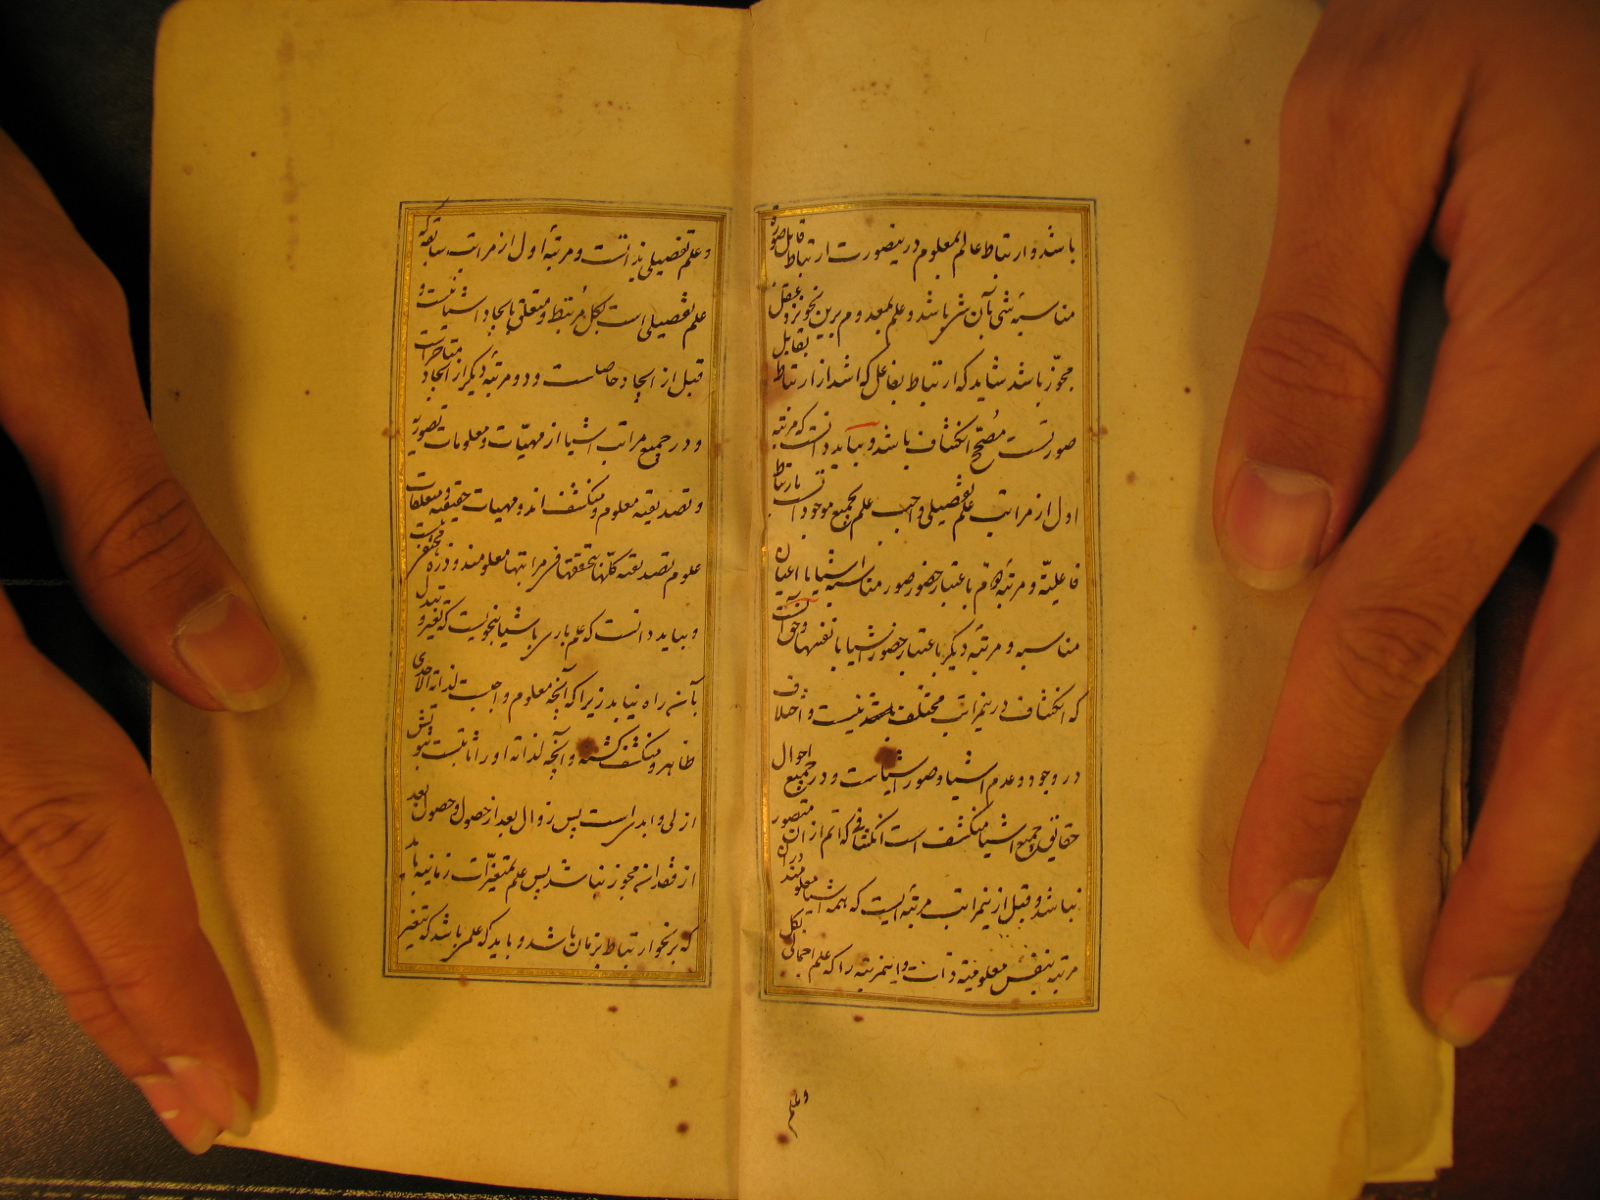 باشد و ارتباط عالم بمعلوم درینصورت ارتباط قابل صورة
مناسبهٔ شی بآن شی باشد و علم بمعدوم برین نحو نزد عقل
مجوّز باشد شاید که ارتباط بفاعل که اشد از ارتباط بقابل
صورتست مصحح انکشاف باشد و بباید دانست که مرتبه
اول از مراتب علم تفصیلی واجب علم بجمیع موجوداتست بارتباط
فاعلیّة و مرتبهٔ دوم باعتبار حضور صور مناسبه اشیا یا اعیان
مناسبه و مرتبهٔ دیگر باعتبار حضور اشیا بانفسها و حق آنست
که انکشاف درینمراتب مختلف نیست و اختلاف
در وجود و عدم اشیا و صور اشیاست و در جمیع احوال
حقایق جمیع اشیا منکشف است انکشافی که اتم از ان متصور
نباشد و قبل ازینمراتب مرتبهٔ ایست که همه اشیا معلومند دران
مرتبه بنفس معلومیة ذات و اینمرتبه را که علم اجمالی بکل
و علم
و علم تفصیلی بذاتست و مرتبهٔ اول از مراتب سابقه که
علم تفصیلی است بکل مرتبط و متعلق بایجاد اشیاست و
قبل از ایجاد حاصلست و دو مرتبهٔ دیگر از ایجاد متاخر است
و در جمیع مراتب اشیا از مهیّات و معلومات تصوریه
و تصدیقیه معلوم و منکشف اند و مهیات حقیقیه و متعلقات
علوم تصدیقیه کلّها بتحققها فی مراتبها معلومند و ذره مختفی نیست
و بباید دانست که علم باری باشیا بنحویست که تغیر و تبدل
بآن راه نیابد زیرا که آنچه معلوم واجب لذاته الاحدی
ظاهر و منکشف گشته و آنچه لذاته او را ثابتست ثبوتش
ازلی و ابدی است پس زوال بعد از حصول و حصول بعد
از فقدان مجوز نباشد پس علم بمتغیّرات زمانیه باید
که بر نحو ارتباط بزمان باشد و باید که علمی باشد که بتغیر